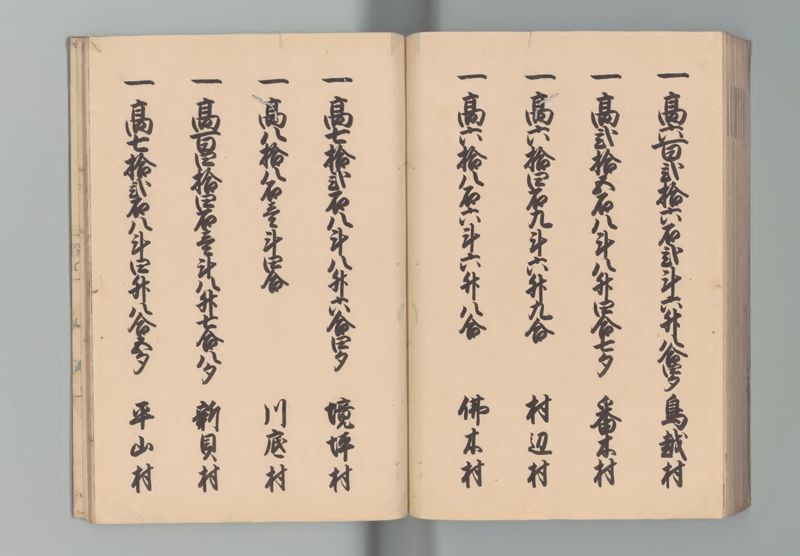 一 高六百弐拾六石弐斗六升八合四夕 鳥越村
一 高弐拾五石八斗八升四合七夕 番木村
一 高六拾四石九斗六升九合 村辺村
一 高六拾八石六斗六升八合 佛木村
一 高七拾弐石八斗八升六合四夕 境坪村
一 高八拾八石壱斗四合 川底村
一 高百四拾四石壱斗八升七合八夕 新貝村
一 高七拾弐石八斗四升八合五夕 平山村